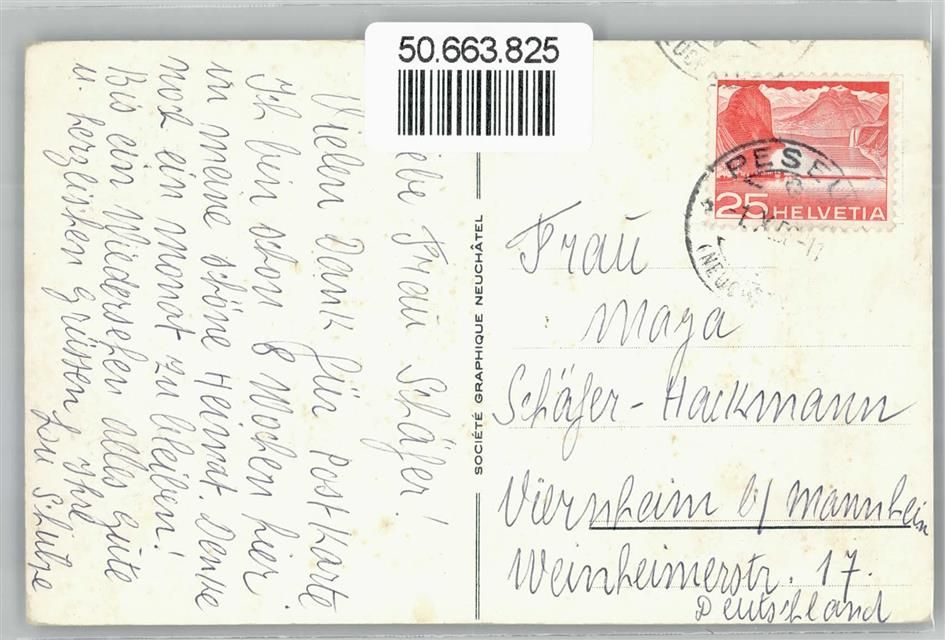 50.663.825
iebe Frau Schäfer!
Vielen Dank für Postkarte
Ich bin schon 8 Wochen hier
in meine schöne Heimat. Denke
noch ein monat zu bleiben!
Bis ein Wiedersehen alles gute
u. herzlichen Grüssen Ihre
SOCIÉTÉ GRAPHIQUE NEUCHÂTEL
25 HELVETIA
PESEUX
Frau
Maya
Schäfer-Hackmann
Viernheim b/ Mannheim
Weinheimerstr. 17.
Deutschland